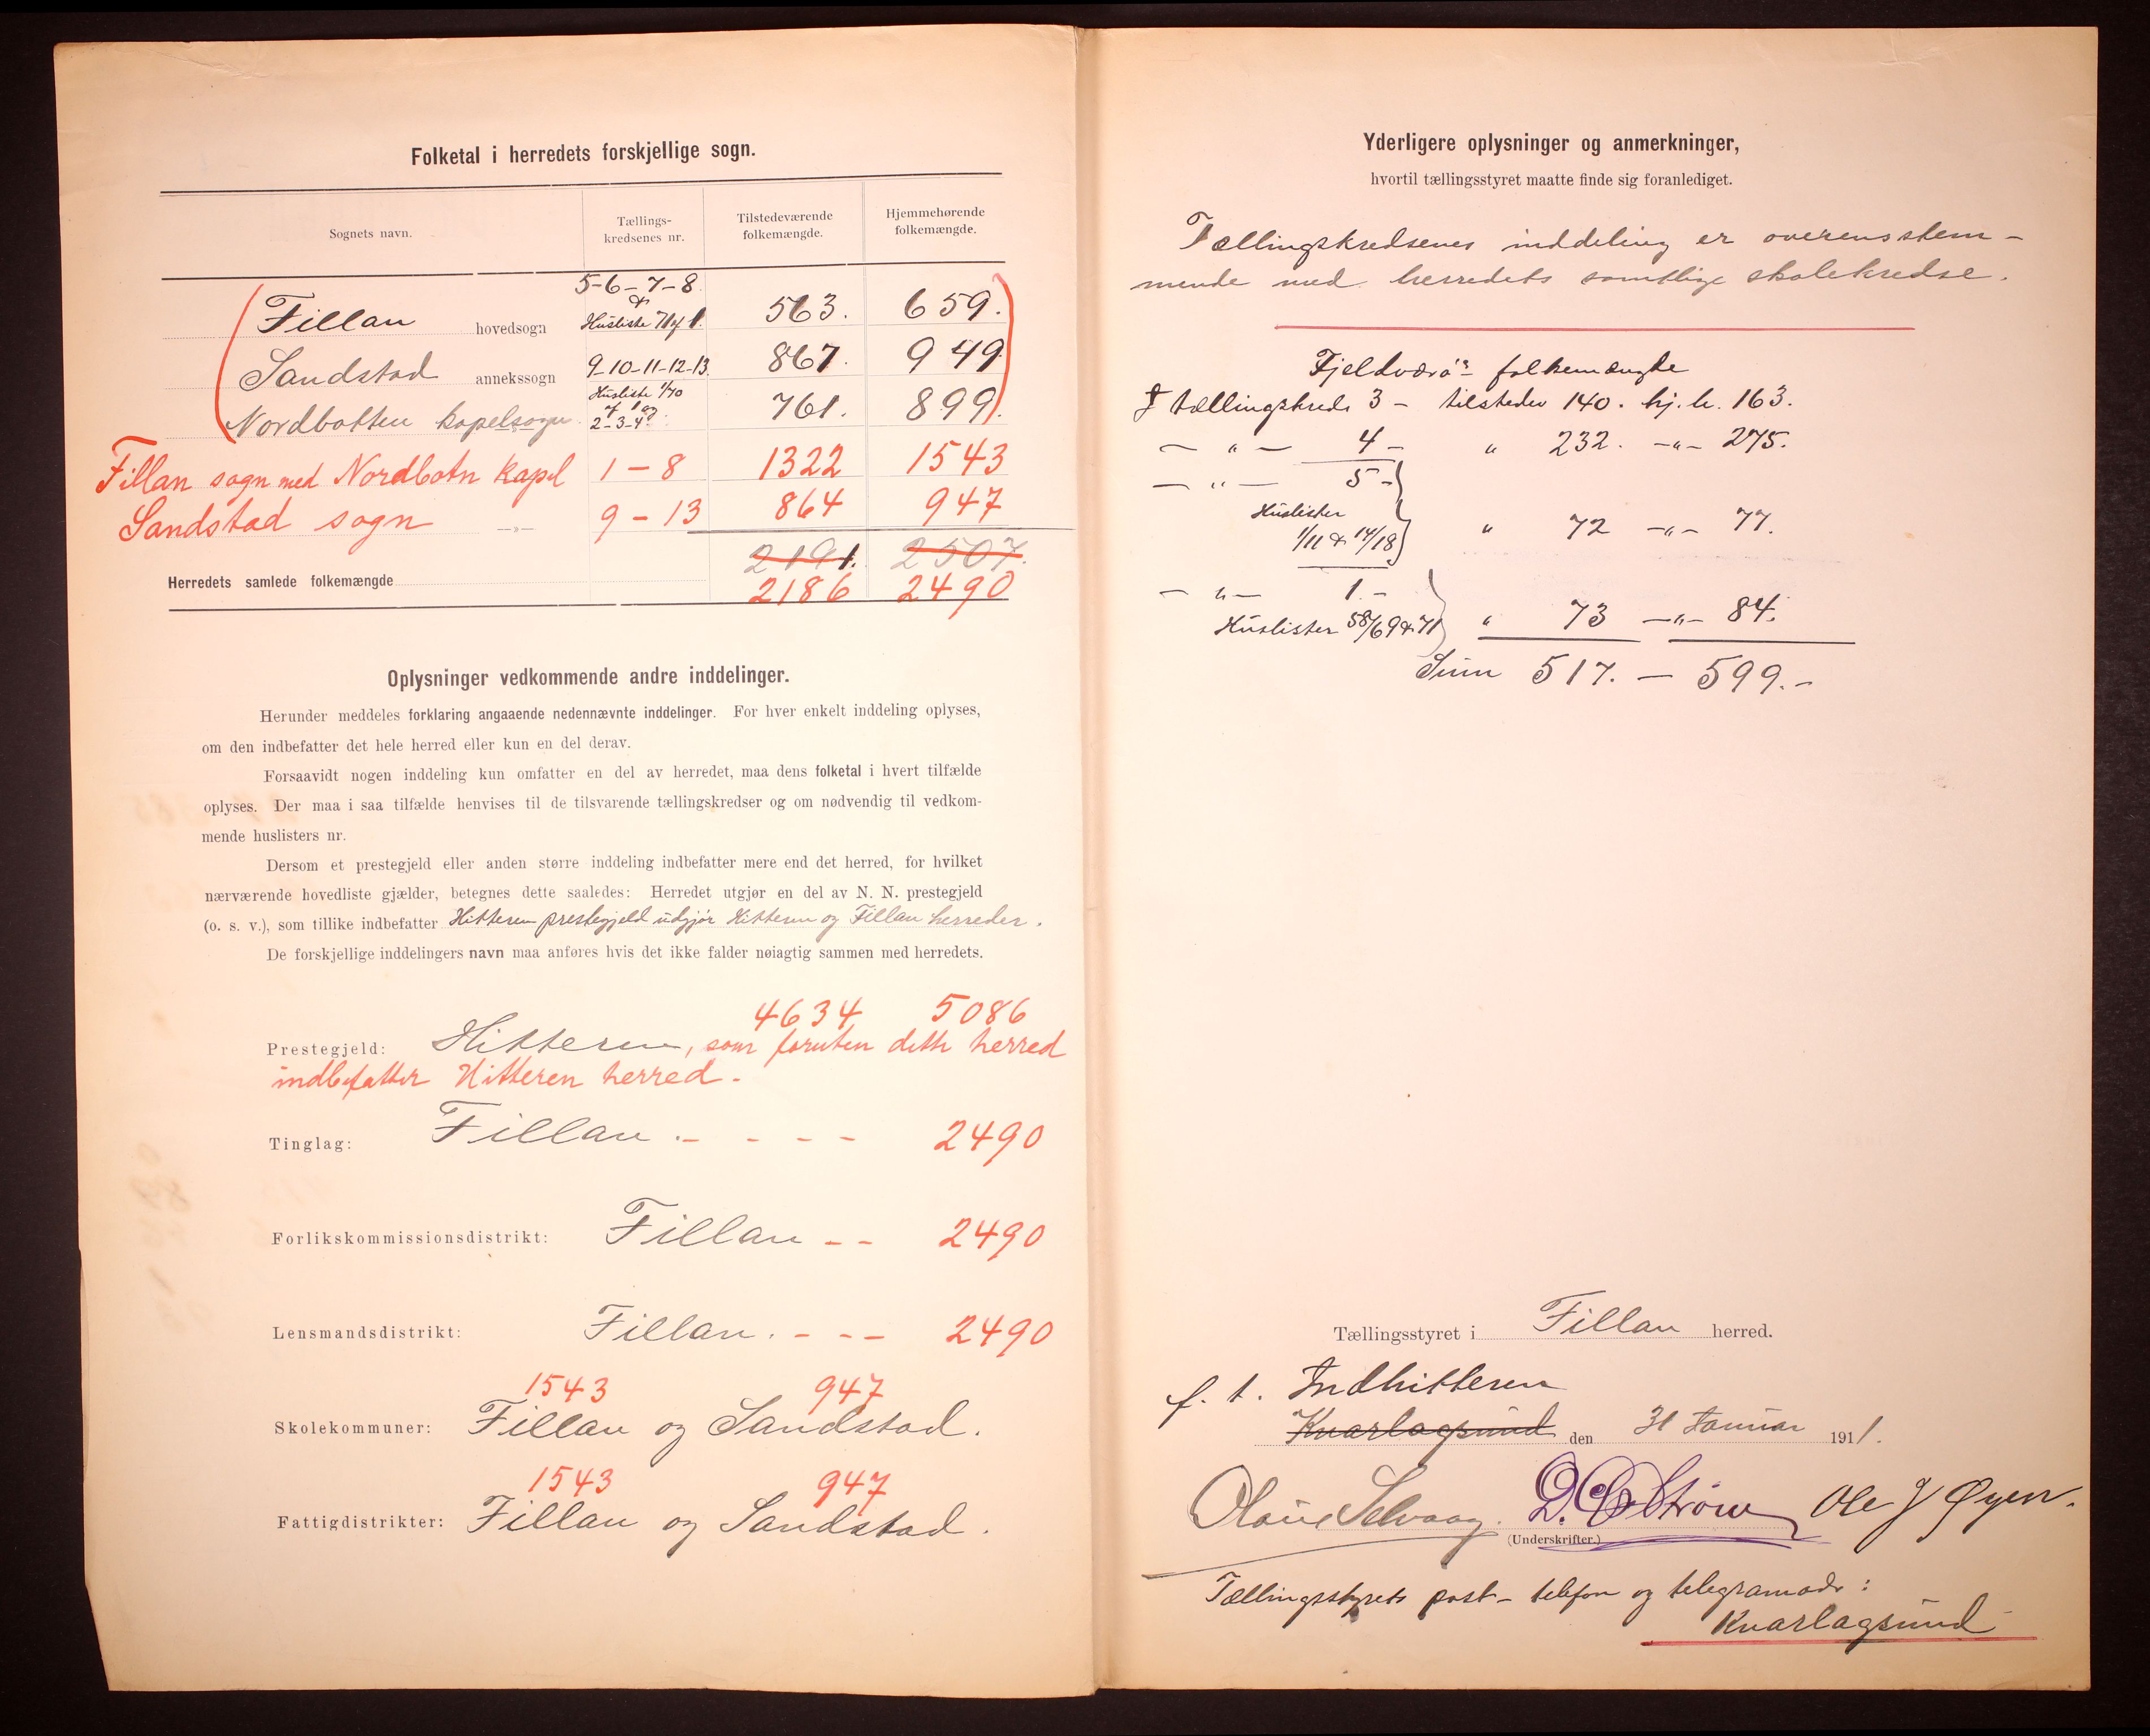 Folketal i herredets forskjellige sogn.
Sognets navn.
Tællings-
kredsenes nr.
Tilstedeværende
folkemængde.
Hjemmehørende
folkemængde.
5-6-7-8.
&
Fillan hovedsogn Husliste 71 af 1. 563. 659.
Sandstad annekssogn 9-10-11-12-13. 867. 949.
Husliste 1/70
af 1 og
Nordbotten kapelsogn. 2-3-4 761. 899.
Fillan sogn med Nordbotn kapel 1-8 1322 1543
Sandstad sogn -„- 9-13 864 947
2191. 2507.
Herredets samlede folkemængde 2186 2490
Oplysninger vedkommende andre inddelinger.
Herunder meddeles forklaring angaaende nedennævnte inddelinger. For hver enkelt inddeling oplyses,
om den indbefatter det hele herred eller kun en del derav.
Forsaavidt nogen inddeling kun omfatter en del av herredet, maa dens folketal i hvert tilfælde
oplyses. Der maa i saa tilfælde henvises til de tilsvarende tællingskredser og om nødvendig til vedkom-
mende huslisters nr.
Dersom et prestegjeld eller anden større inddeling indbefatter mere end det herred, for hvilket
nærværende hovedliste gjælder, betegnes dette saaledes: Herredet utgjør en del av N. N. prestegjeld
(o. s. v.), som tillike indbefatter Hitteren prestegjeld udgjør Hitteren og Fillan herreder.
De forskjellige inddelingers navn maa anføres hvis det ikke falder nøiagtig sammen med herredets.
4634 5086
Prestegjeld: Hitteren, som foruten dette herred
indbefatter Hitteren herred.
Tinglag: Fillan. - - - - 2490
Forlikskommissionsdistrikt: Fillan - - 2490
Lensmandsdistrikt: Fillan. - - - 2490
1543 947
Skolekommuner: Fillan og Sandstad.
1543 947
Fattigdistrikter: Fillan og Sandstad.
Yderligere oplysninger og anmerkninger,
hvortil tællingsstyret maatte finde sig foranlediget.
Tællingskredsenes inddeling er overensstem-
mende med herredets samtlige skolekredse.
Fjeldværø's folkemængde
I tællingskreds 3 - tilstede 140. hj.h. 163.
- „ - 4 - „ 232. -„- 275.
- „ - 5 -
Huslister
1/11 & 14/18 „ 72 -„- 77.
- „ - 1. -
Huslister 58/69 & 71 „ 73 -„- 84.
Sum 517. - 599.-
Tællingsstyret i Fillan herred.
f. t. Indhitteren
Kvarlagsund den 31 Januar 1911.
Olaus Selvaag. Ole J Øyen.
(Underskrifter.)
Tællingsstyrets post- telefon og telegramadr:
Kvarlagsund